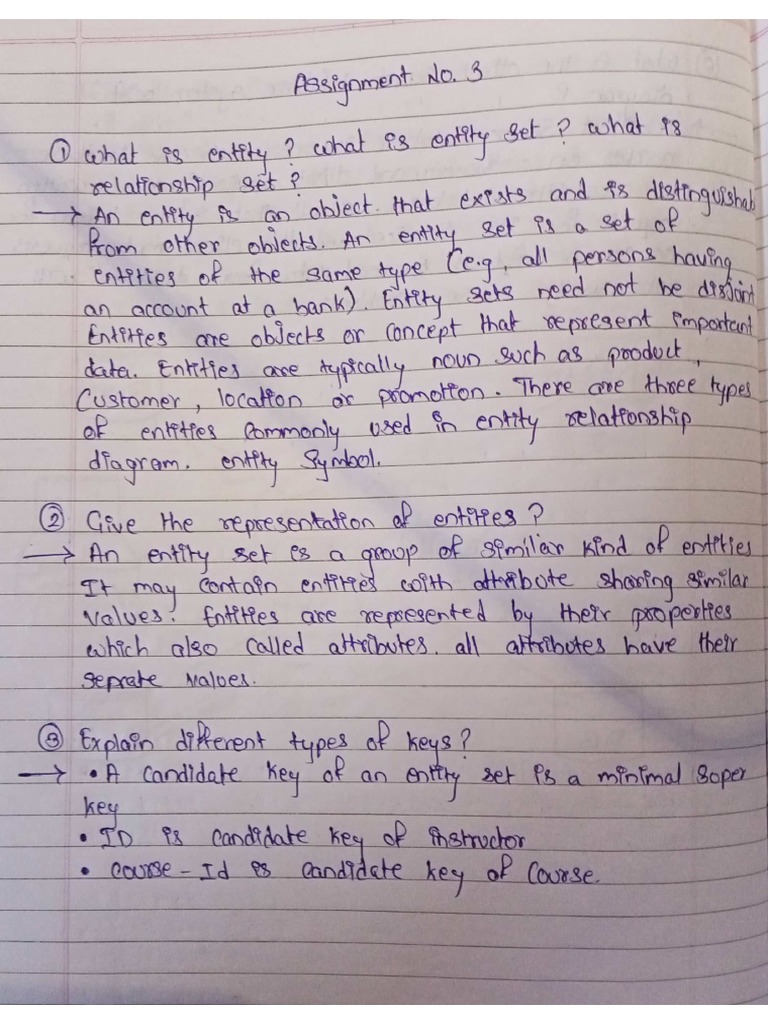 Assignment No. 3
① What is entity ? What is entity set ? what is
relationship set ?
→ An entity is an object that exists and is distinguishab
from other objects. An entity set is a set of
entities of the same type (e.g. all persons having
an account at a bank). Entity sets need not be disjoint
Entities are objects or concept that represent important
data. Entities are typically noun such as product,
Customer, location or promotion. There are three types
of entities commonly used in entity relationship
diagram. entity Symbol.
② Give the representation of entities ?
→ An entity set is a group of similar kind of entities
It may contain entities with attribute sharing similar
values. Entities are represented by their properties
which also called attributes. all attributes have their
seprate values.
③ Explain different types of keys ?
→ • A candidate key of an entity set is a minimal soper
key
• ID is candidate key of instructor
• course - Id is candidate key of Course.